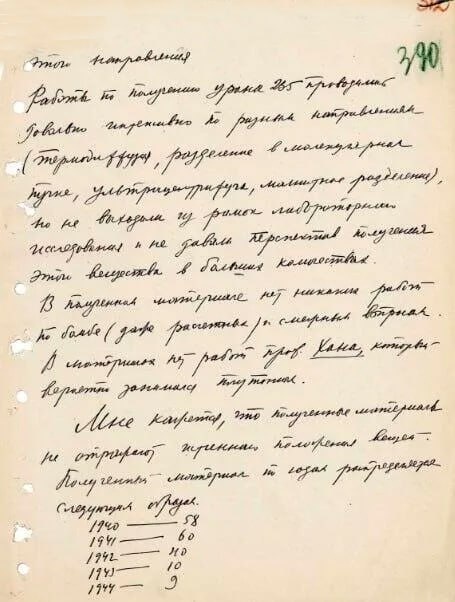 390
этого направления
Работы по получению урана 235 проводились
довольно интенсивно по разным направлениям
(термодиффузия, разделение в молекулярном
пучке, ультрацентрифуга, магнитное разделение),
но не выходили из рамок лабораторных
исследований и не давали перспектив получения
этого вещества в больших количествах.
В полученном материале нет никаких работ
по бомбе (даже расчетных) и смежным вопросам.
В материалах нет работ проф. Хана, который
вероятно занимался плутонием.
Мне кажется, что полученные материалы
не отражают истинного положения вещей.
Полученный материал по годам распределяется
следующим образом.
1940 — 58
1941 — 60
1942 — 40
1943 — 10
1944 — 9